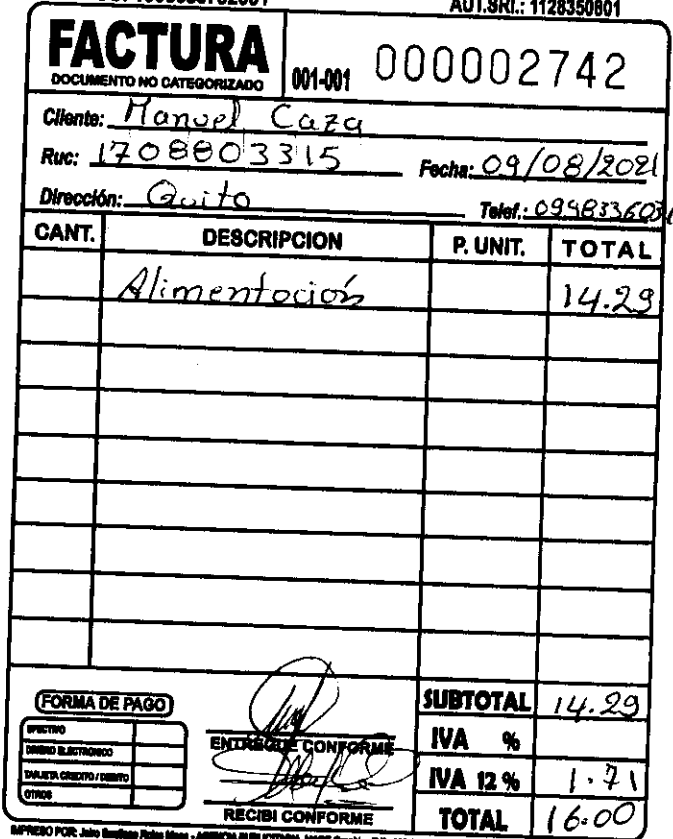 AUT.SRI.: 1128350801
FACTURA
DOCUMENTO NO CATEGORIZADO
001-001 000002742
Cliente: Manuel Caza
Ruc: 1708803315 Fecha: 09/08/2021
Dirección: Quito Telef.: 099833603
CANT. DESCRIPCION P. UNIT. TOTAL
Alimentación 14.29
FORMA DE PAGO
EFECTIVO
DINERO ELECTRONICO
TARJETA CREDITO / DEBITO
OTROS
ENTREGUE CONFORME
RECIBI CONFORME
SUBTOTAL 14.29
IVA %
IVA 12 % 1.71
TOTAL 16.00
IMPRESO POR: